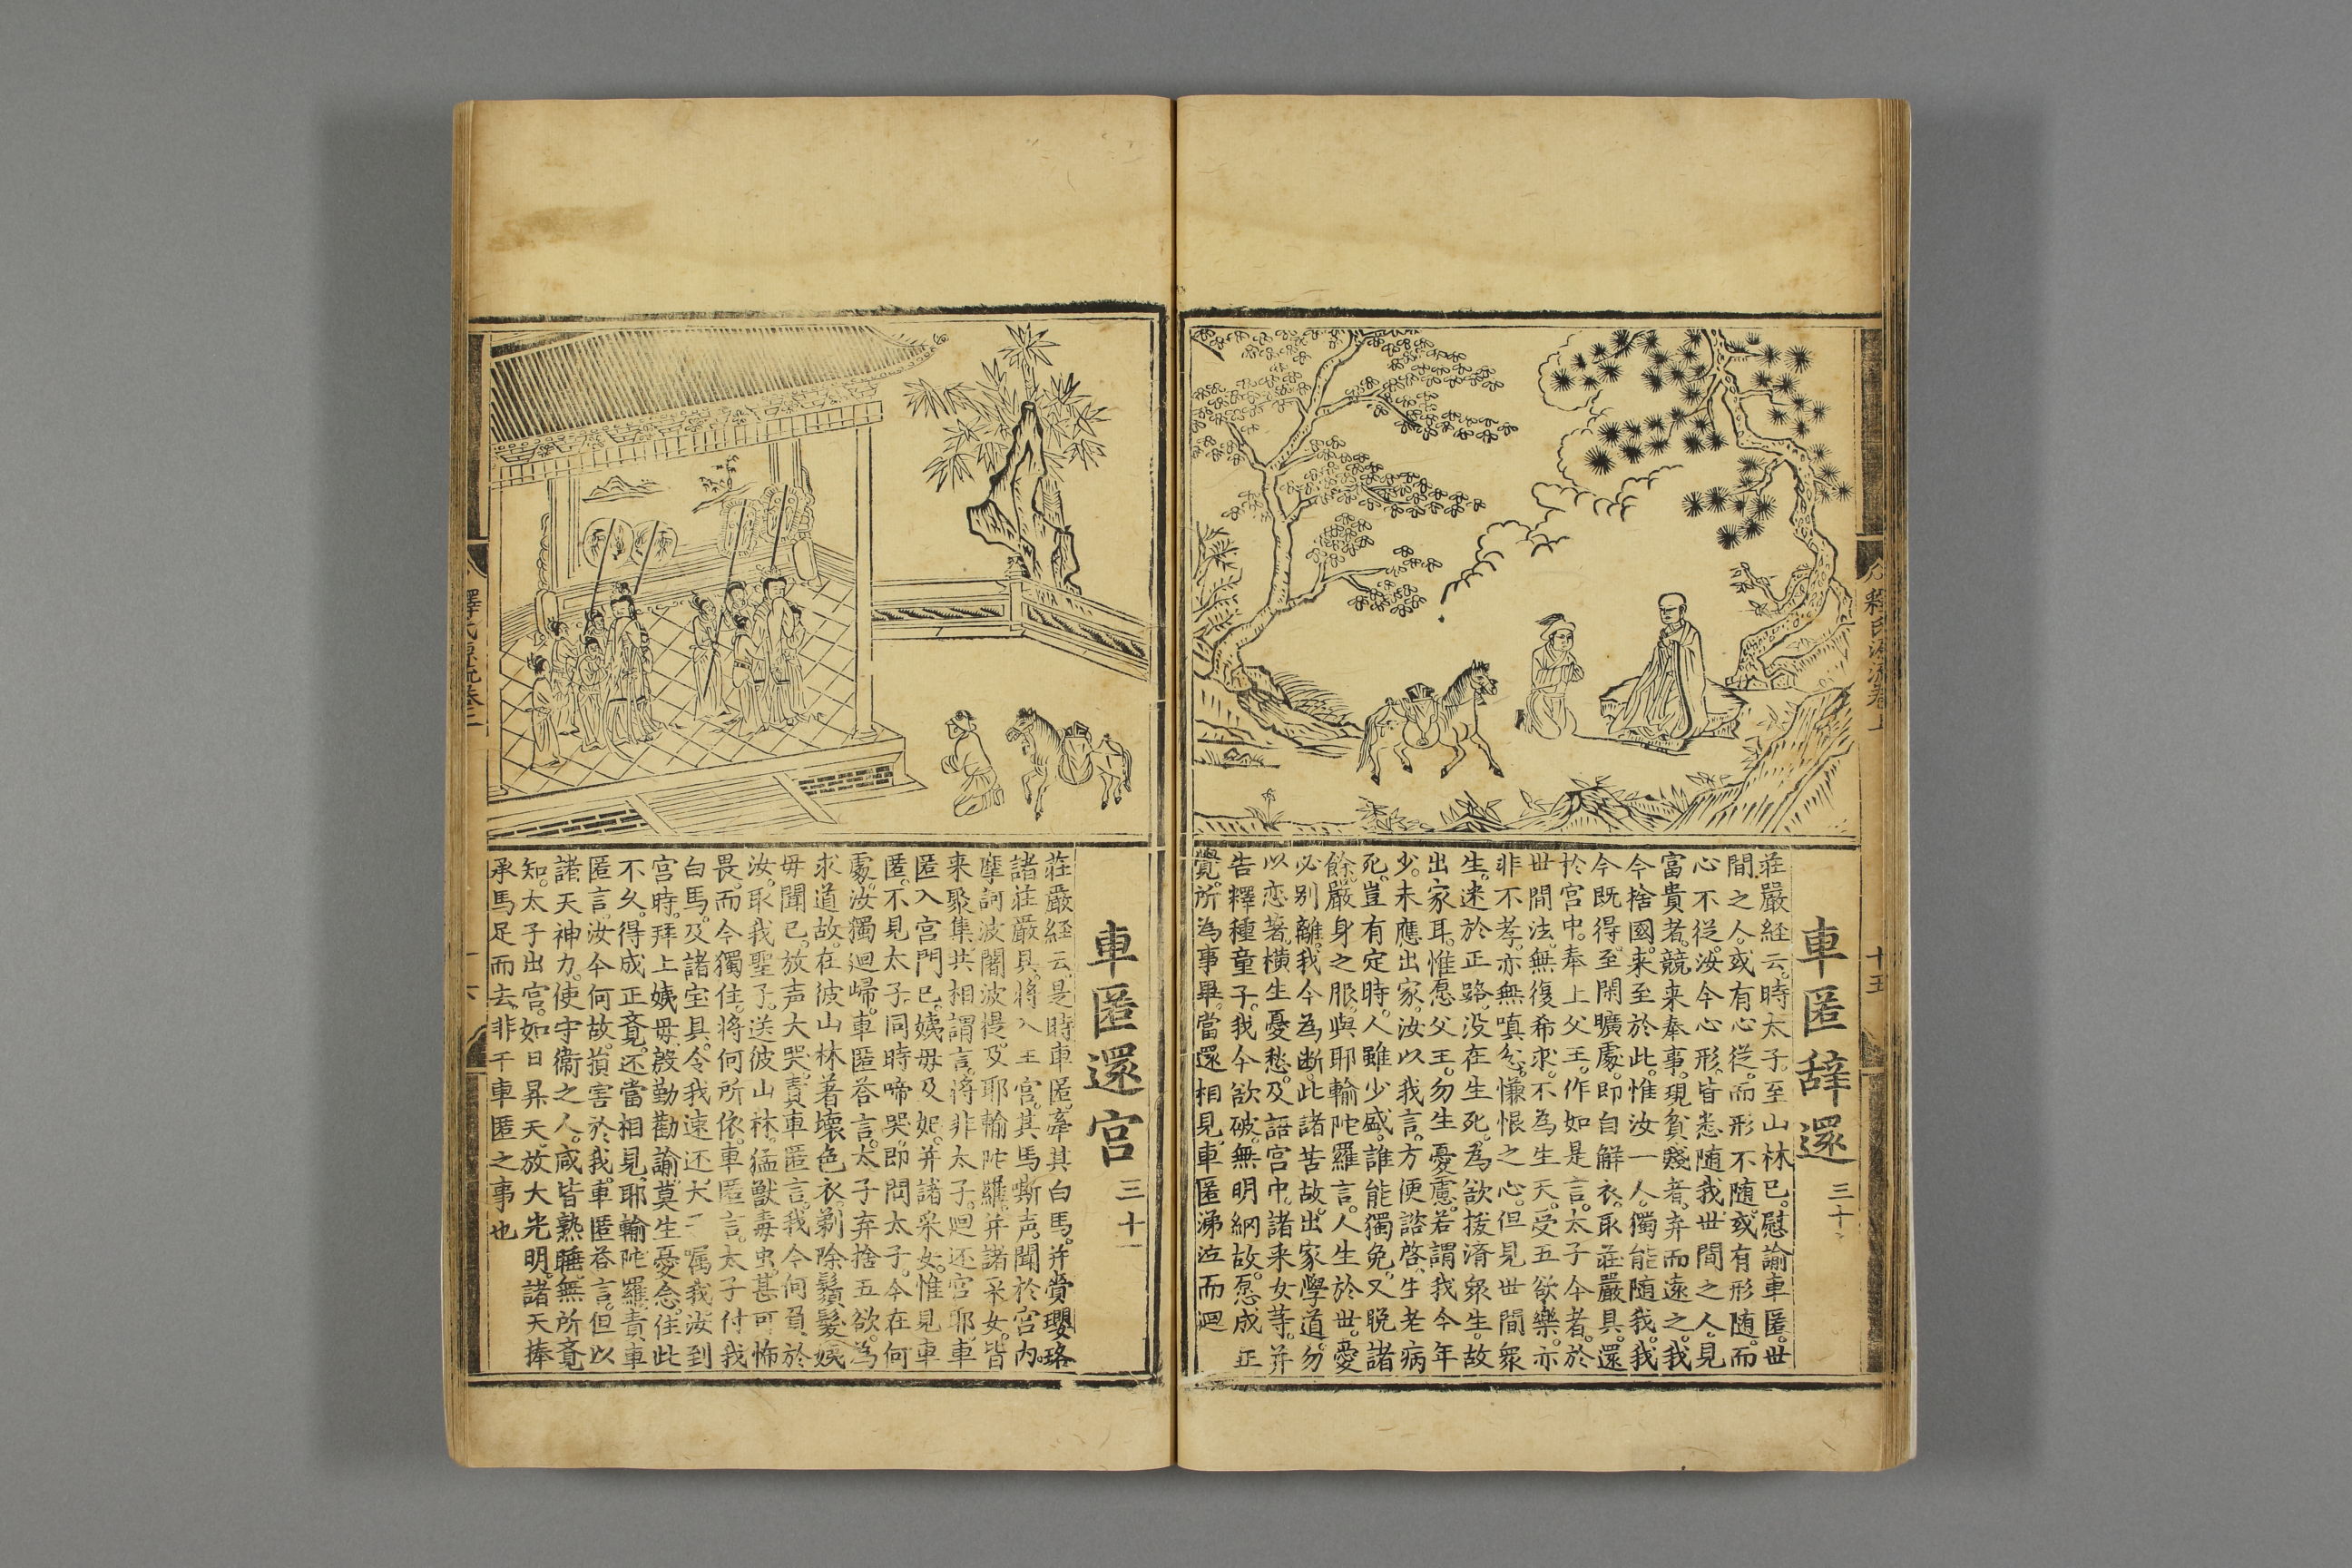 釋氏源流卷上
十五
車匿辞還 三十
莊嚴経云。時太子。至山林已。慰諭車匿。世
間之人。或有心従。而形不随。或有形随。而
心不従。汝今心形。皆悉随我。世間之人。見
富貴者。競来奉事。現貧賤者。弃而遠之。我
今捨國。来至於此。惟汝一人。獨能随我。我
今既得。至閑曠處。即自解衣。取莊嚴具。還
於宮中。奉上父王。作如是言。太子今者。於
世間法。無復希求。不為生天。受五欲樂。亦
非不孝。亦無嗔忿。慊恨之心。但見世間眾
生。迷於正路。没在生死。為欲拔濟眾生。故
出家耳。惟愿父王。勿生憂慮。若謂我今年
少。未應出家。汝以我言。方便諮啓。生老病
死。豈有定時。人雖少盛。誰能獨免。又脫諸
餘。嚴身之服。與耶輸陀羅言。人生於世。愛
必别離。我今為断。此諸苦故。出家學道。勿
以恋著。横生憂愁。及語宮中。諸来女等。并
告釋種童子。我今欲破。無明網故。愿成正
覺。所為事畢。當還相見。車匿涕泣而迴
車匿還宮 三十一
莊嚴経云。是時車匿。牽其白馬。并賫瓔珞
諸莊嚴具。将入王宮。其馬嘶声。聞於宮内。
摩訶波闍波提。及耶輸陀羅。并諸采女。皆
来聚集。共相謂言。将非太子。迴还宮耶。車
匿入宮門已。姨毋及妃。并諸采女。惟見車
匿。不見太子。同時啼哭。即問太子。今在何
處。汝獨迴歸。車匿荅言。太子弃捨五欲。為
求道故。在彼山林。著壞色衣。剃除鬚髮。姨
毋聞已。放声大哭。責車匿言。我今何負。於
汝。取我聖子。送彼山林。猛獸毒虫。甚可怖
畏。而今獨住。将何所依。車匿言。太子付我
白馬。及諸宝具。令我速还。太子嘱我。汝到
宮時。拜上姨毋。慇勤勸諭。莫生憂念。住此
不久。得成正竟。还當相見。耶輸陀羅。責車
匿言。汝今何故。損害於我。車匿荅言。但以
諸天神力。使守衞之人。咸皆熟睡。無所竟
知。太子出宮。如日昇天。放大光明。諸天捧
承馬足而去。非干車匿之事也
釋氏源流卷上
十六